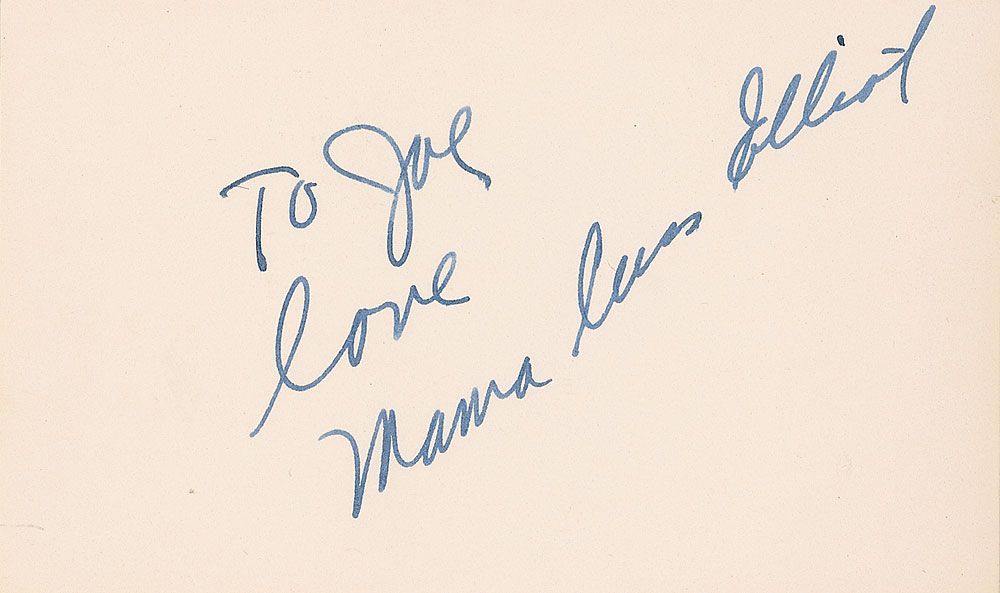 To Joe
Love
Mama Cass Elliot